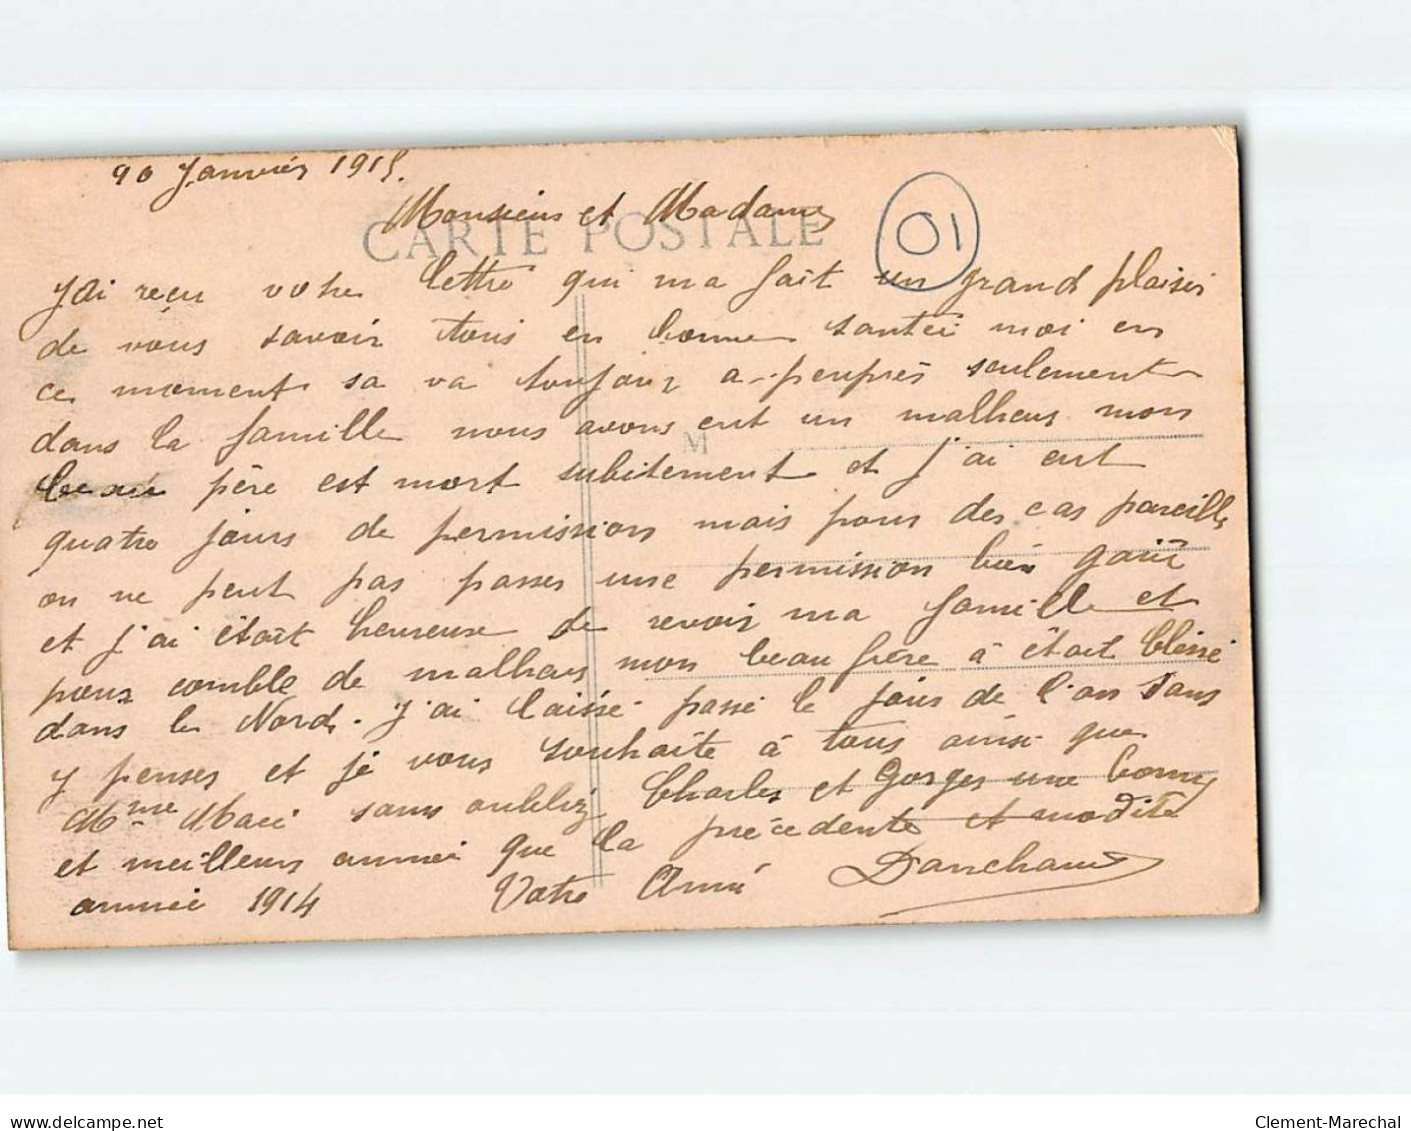 20 Janvier 1915.
Monsieur et Madame
CARTE POSTALE
01
J'ai reçu votre lettre qui ma fait un grand plaisir
de vous savoir tous en bonne santée moi en
ce moment sa va toujour a-peuprès seulement
dans la famille nous avons eut un malheur mon
M
beau père est mort subitement et j'ai eut
quatre jours de permission mais pour des cas pareille
on ne peut pas passer une permission bien gaiie
et j'ai était heureuse de revoir ma famille et
pour comble de malheur mon beau frère à était blessé
dans le Nord. J'ai laissé passé le jour de l'an sans
y penser et je vous souhaite à tous ainsi que
Mme Mari sans oubliez Charles et Gorges une bonne
et meilleur année que la précédente et maudite
année 1914 Votre Ami Danchaud
delcampe.net
Clement-Marechal